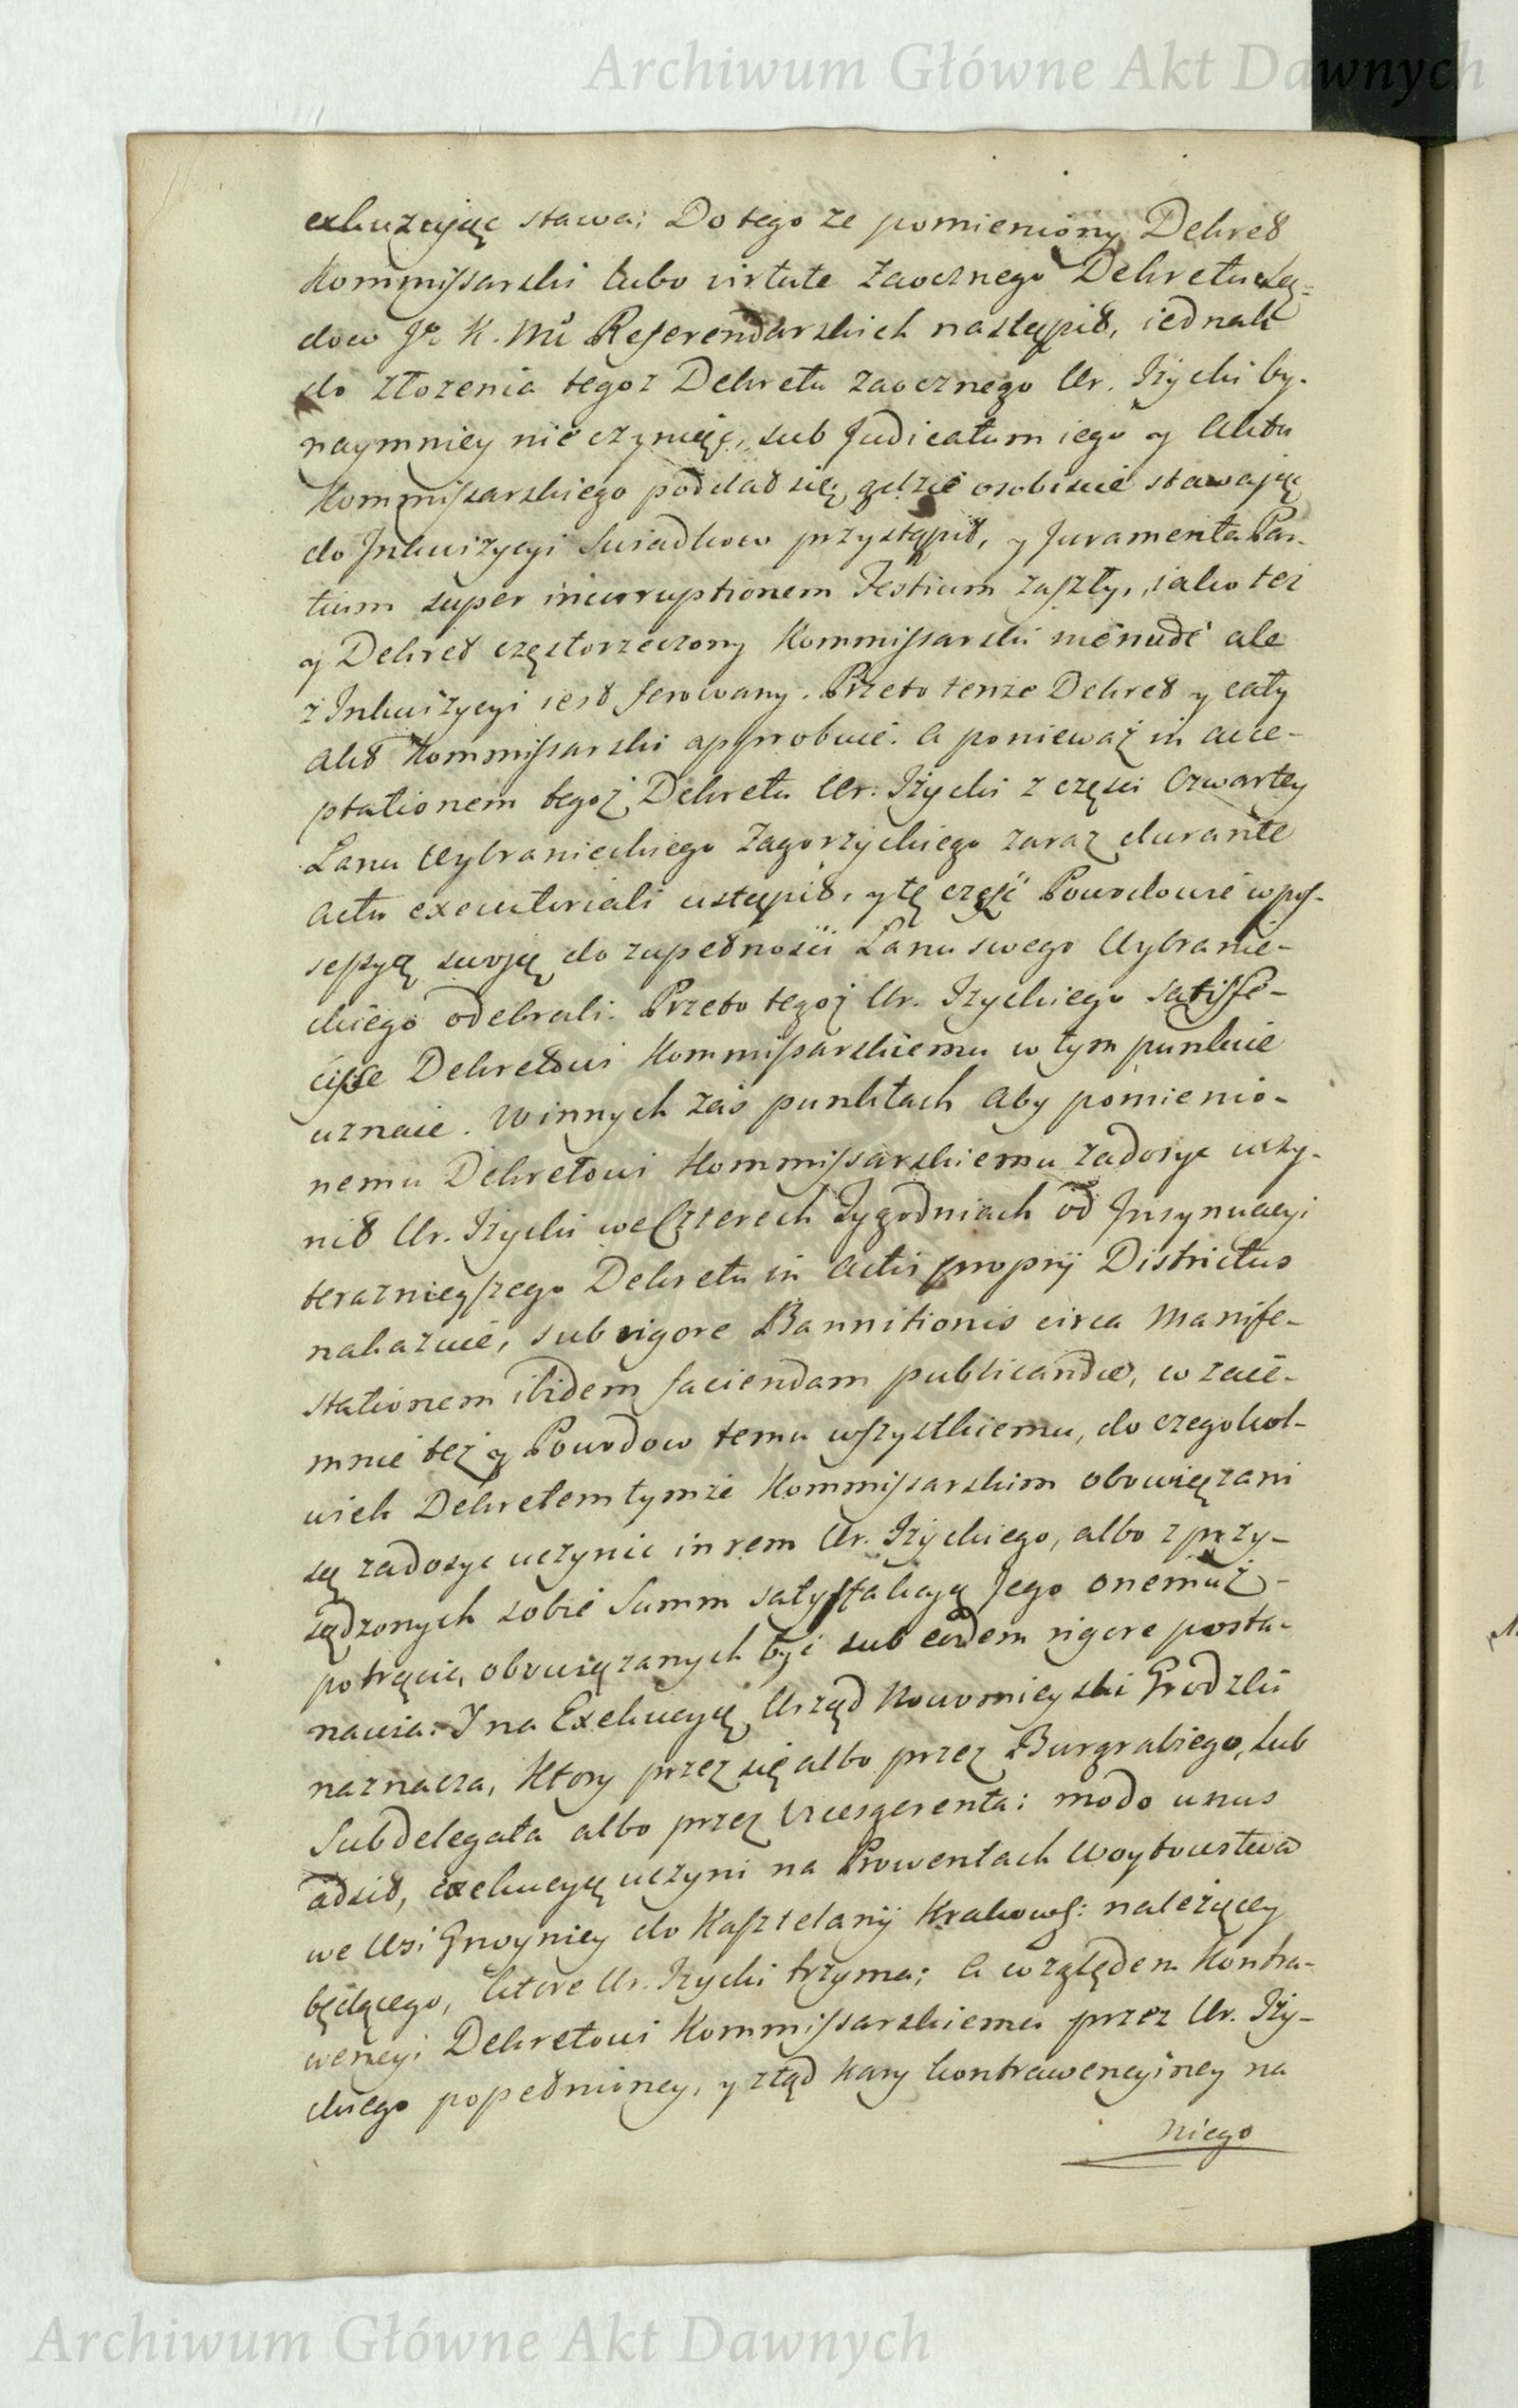 Archiwum Główne Akt Dawnych
exkuzując stawa; Do tego ze pomieniony Dekret
Kommissarski lubo virtute Zaocznego Dekretu Są-
dow Je K. Mci Referendarskich nastąpił, iednak
do złozenia tegoz Dekretu zaocznego Ur. Izycki by-
naymniey nie czyniąc, sub Judicatum iego y Aktu
Kommissarskiego poddał się, gdzie osobiscie stawając
do Inkwizycyi Swiadkow przystąpił, y Juramenta Par-
tium super incorruptionem Testium zaszły, iako tez
y Dekret częstorzeczony Kommissarski nie nudè ale
z Inkwizycyi iest ferowany. Przeto tenze Dekret y cały
Akt Kommissarski approbuie. A ponieważ in acce-
ptationem tegoż Dekretu Ur. Iżycki z części Czwartey
Łanu Wybranieckiego Zagorzyckiego zaraz durante
Actu executoriali ustąpił, y tę część Powodowie w pos-
sessyą swoją do zupełności Łanu swego Wybranie-
ckiego odebrali. Przeto tegoż Ur. Izyckiego satisfe-
cisse Dekretowi Kommissarskiemu w tym punkcie
uznaie. W innych zaś punktach aby pomienio-
nemu Dekretowi Kommissarskiemu zadosyc uczy-
nił Ur. Iżycki we Czterech Tygodniach od Insynuacyi
teraznieyszego Dekretu in Actis proprij Districtus
nakazuie, sub rigore Bannitionis circa Manife-
stationem ibidem faciendam publicandæ, w zaie-
mnie też y Powodow temu wszystkiemu, do czegokol-
wiek Dekretem tymże Kommissarskim obowiązani
są zadosyc uczynic in rem Ur. Iżyckiego, albo z przy-
sądzonych sobie Summ satysfakcyą Jego onemuż -
potrącić, obowiązanych być sub eodem rigore posta-
nawia. I na Exekucyą Urząd Nowomieyski Grodzki
naznacza, Ktory przez się albo przez Burgrabiego, lub
Subdelegata albo przez Vicesgerenta: modo unus
adsit, exekucyą uczyni na Prowentach Woytowstwa
we Wsi Gnoyniey do Kasztelanij Krakows: należącey
będącego, ktore Ur. Izycki trzyma; A względem Kontra-
wencyi Dekretowi Kommissarskiemu przez Ur. Iży-
ckiego popełnioney, y ztąd kary kontrawencyiney na
niego
Archiwum Główne Akt Dawnych